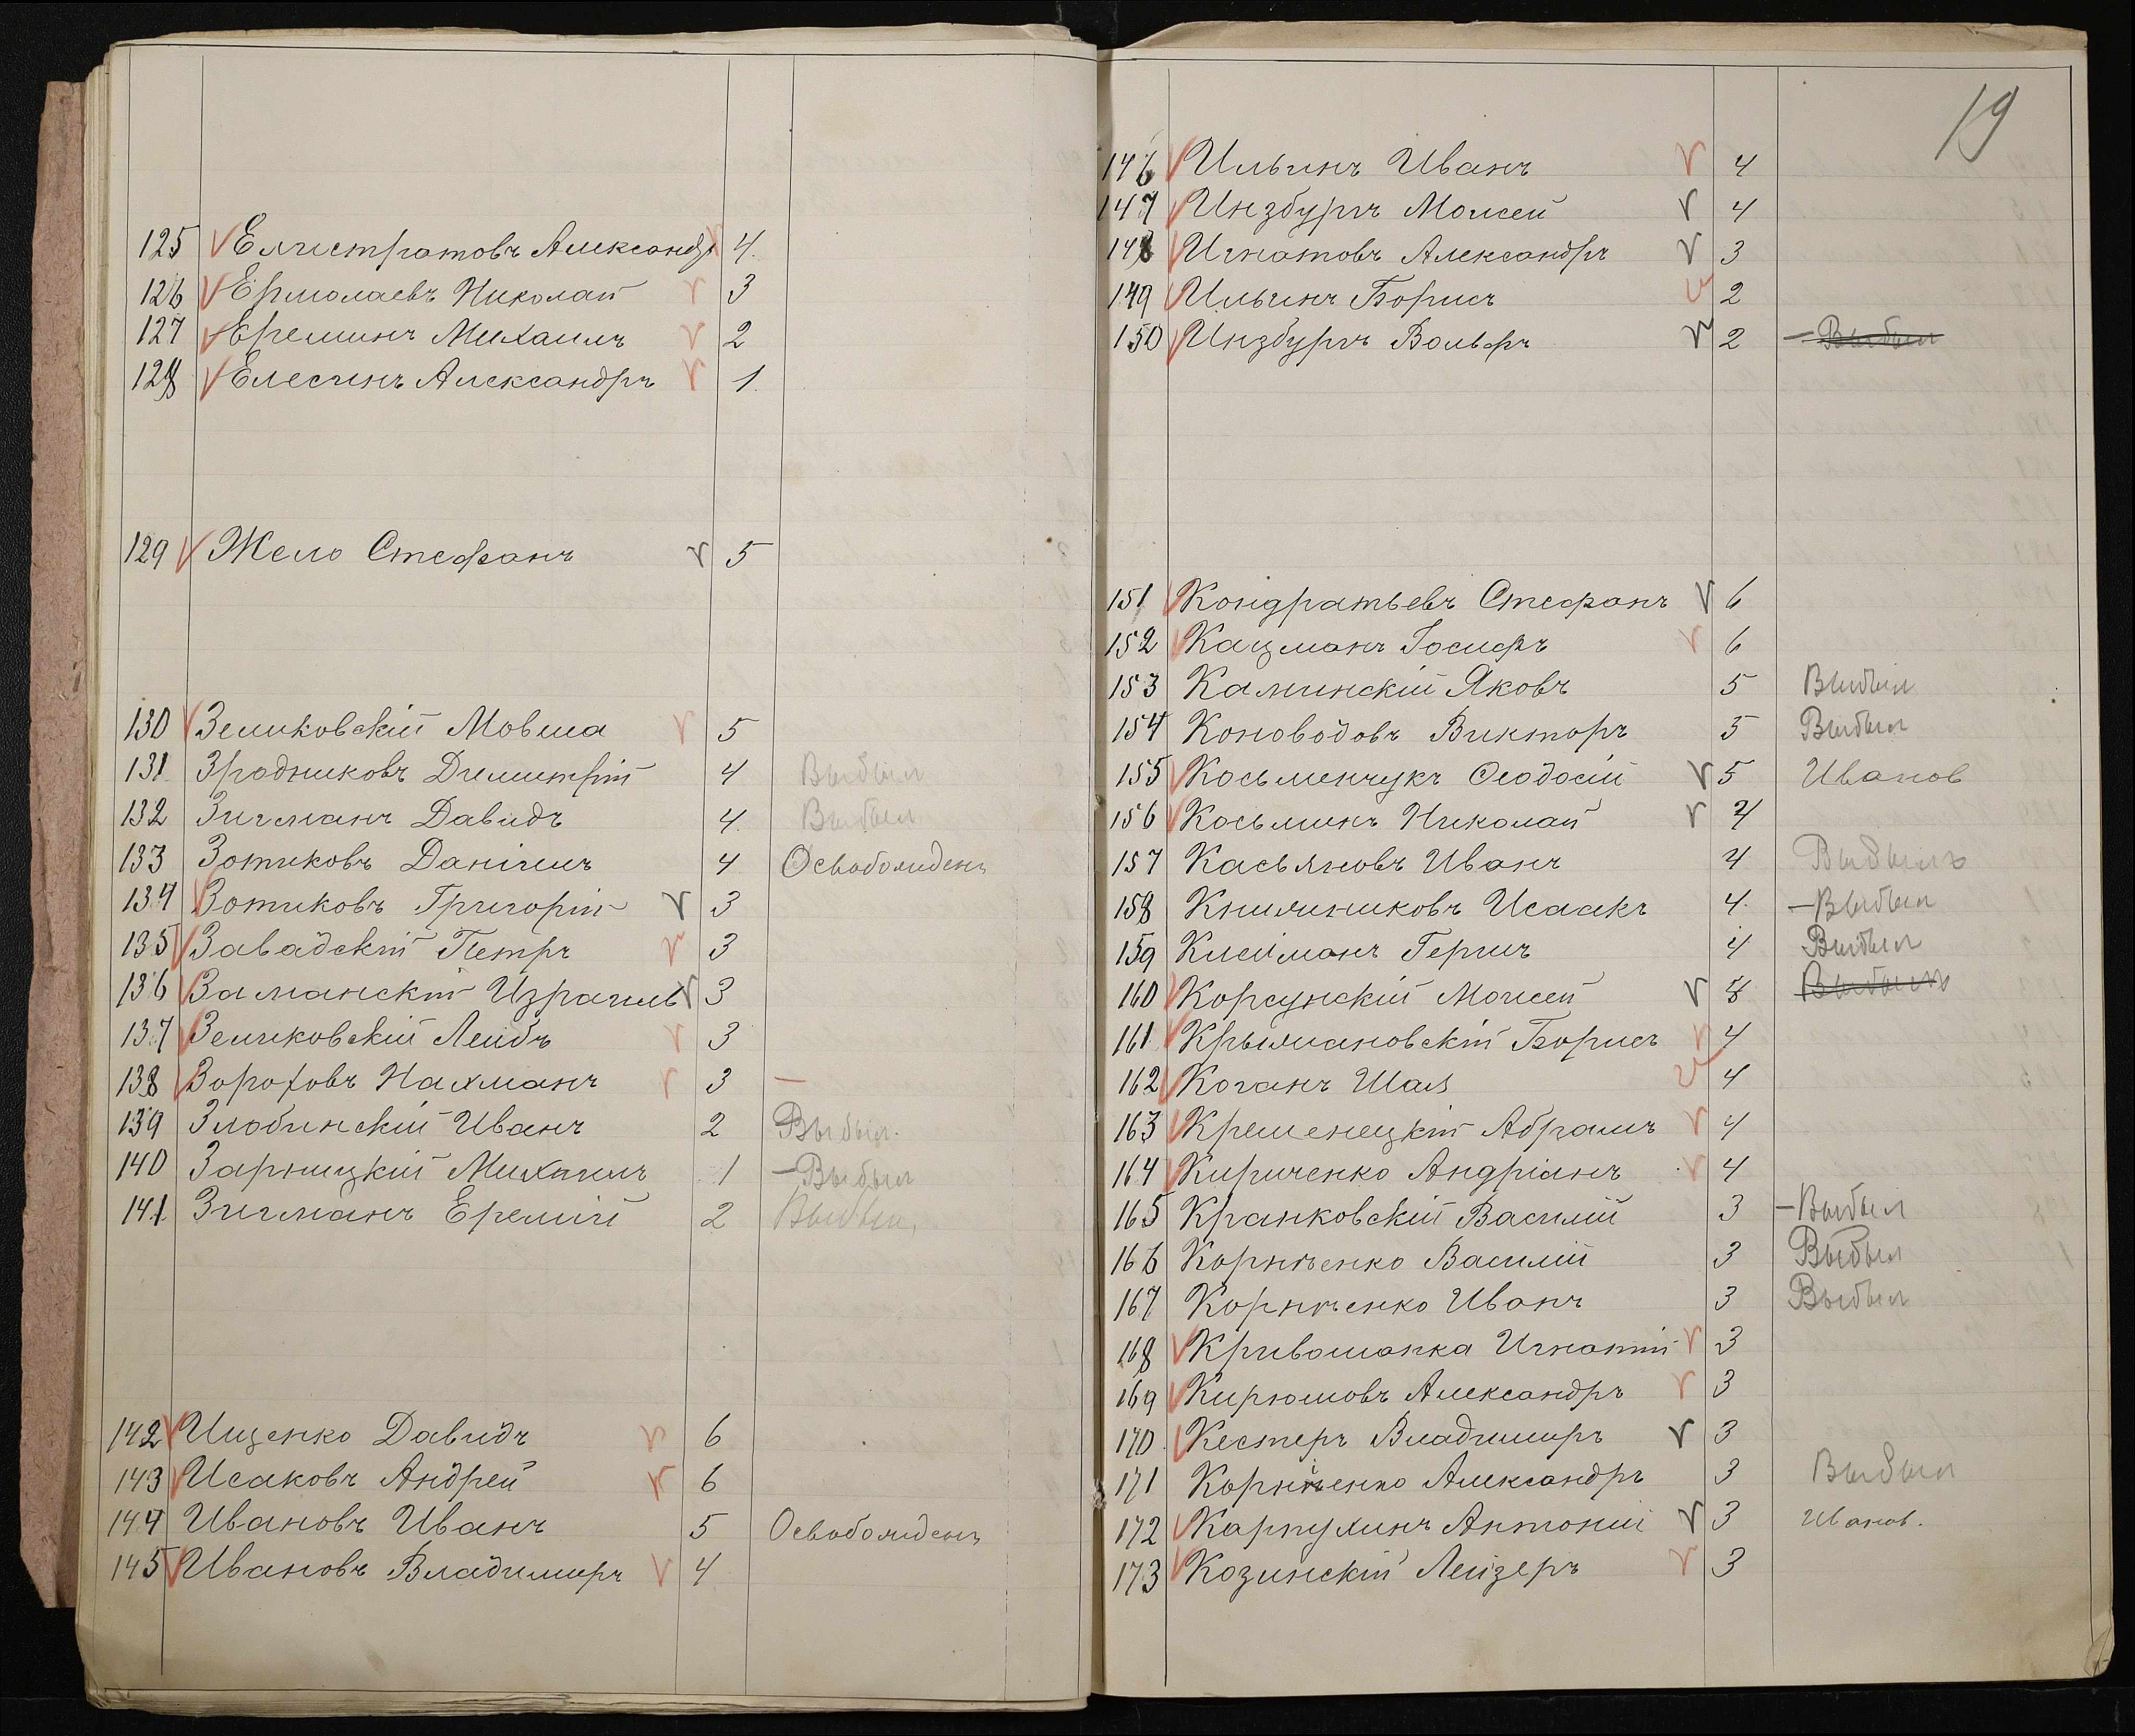 125 Елистратовъ Александръ 4.
126 Ермолаевъ Николай 3
127 Ереминъ Михаилъ 2
128 Елесинъ Александръ 1.
129 Жело Стефанъ 5
130 Зеликовскій Мовша 5
131 Зродниковъ Димитрій 4 Выбыл
132 Зигманъ Давидъ 4. Выбыл
133 Зотиковъ Даніилъ 4 Освобожденъ
134 Зотиковъ Григорій 3
135 Завадскій Петръ 3
136 Заманскій Израиль 3
137 Зеликовскій Лейбъ 3
138 Вороховъ Нахманъ 3 —
139 Злобинскій Иванъ 2 Выбыл.
140 Зарницкій Михаилъ 1 —Выбыл
141 Зигманъ Еремій 2 Выбыл,
142 Ищенко Давидъ 6
143 Исаковъ Андрей 6
144 Ивановъ Иванъ 5 Освобожденъ
145 Ивановъ Владимиръ 4
19
146 Ильинъ Иванъ 4
147 Инзбургъ Моисей 4
148 Игнатовъ Александръ 3
149 Ильинъ Борисъ 2
150 Инзбургъ Вольфъ 2 —Выбыл
151 Кондратьевъ Стефанъ 6
152 Кацманъ Іосифъ 6
153 Каминскій Яковъ 5 Выбыл
154 Коноводовъ Викторъ 5 Выбыл
155 Косьменчукъ Ѳеодосій 5 Иванов
156 Косьминъ Николай 4
157 Касьяновъ Иванъ 4 Выбылъ
158 Книжниковъ Исаакъ 4. —Выбыл
159 Клейманъ Гершъ 4 Выбыл
160 Корсунскій Моисей Выбылъ
161 Крыжановскій Борисъ 4
162 Коганъ Шая 4
163 Кременецкій Абрамъ 4
164 Кириченко Андріанъ 4
165 Кранковскій Василій 3 —Выбыл
166 Корніенко Василій 3 Выбыл
167 Корніенко Иванъ 3 Выбыл
168 Кривошапка Игнатій 3
169 Кирюшовъ Александръ 3
170 Кестеръ Владимиръ 3
171 Корніенко Александръ 3 Выбыл
172 Карпухинъ Антоній 3 Иванов.
173 Козинскій Лейзеръ 3